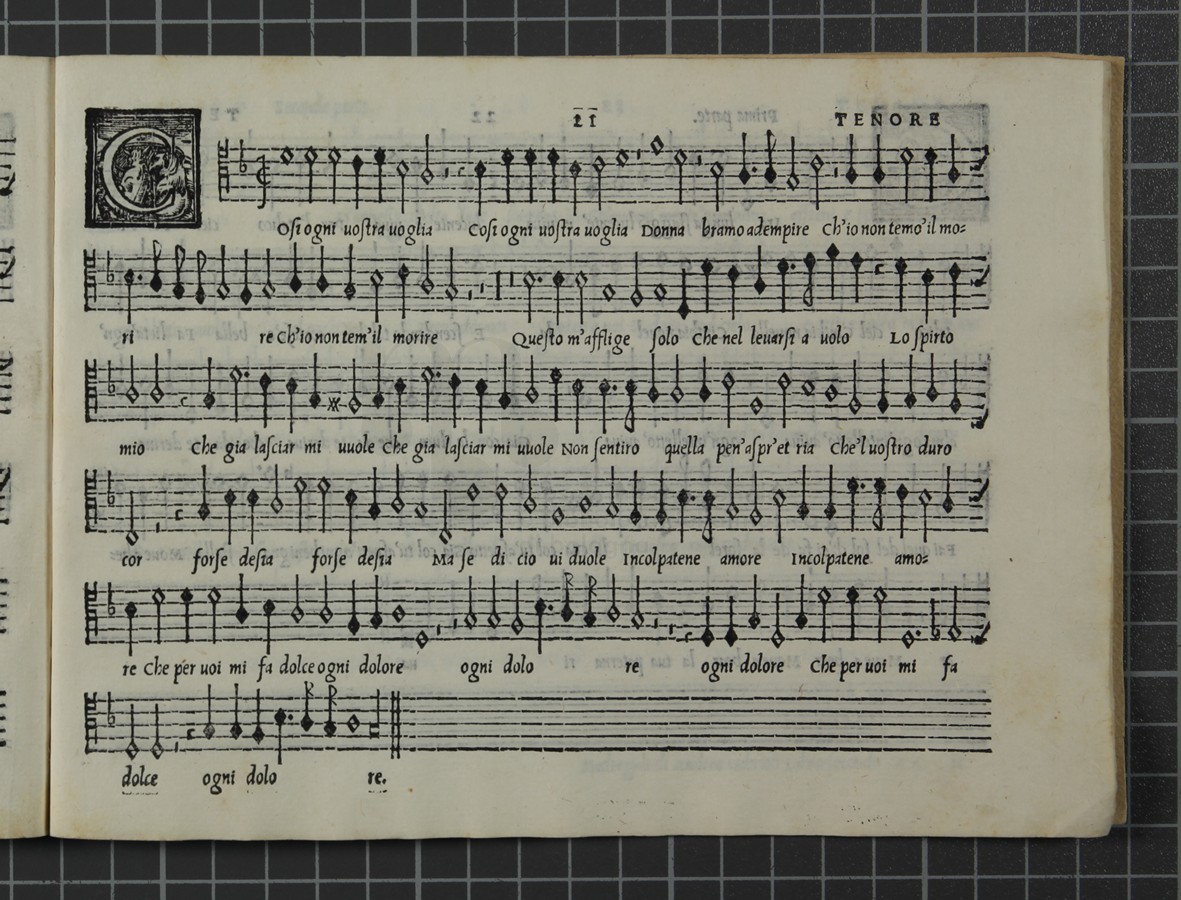 21 TENORE
COsi ogni uostra uoglia Cosi ogni uostra uoglia Donna bramo adempire Ch'io non temo'il mo=
ri re Ch'io non tem'il morire Questo m'afflige solo Che nel leuarsi a uolo Lo spirto
mio Che gia lasciar mi uuole Che gia lasciar mi uuole Non sentiro quella pen'aspr'et ria Che'l uostro duro
cor forse desia forse desia Ma se di cio ui duole Incolpatene amore Incolpatene amo=
re Che per uoi mi fa dolce ogni dolore ogni dolo re ogni dolore Che per uoi mi fa
dolce ogni dolo re.